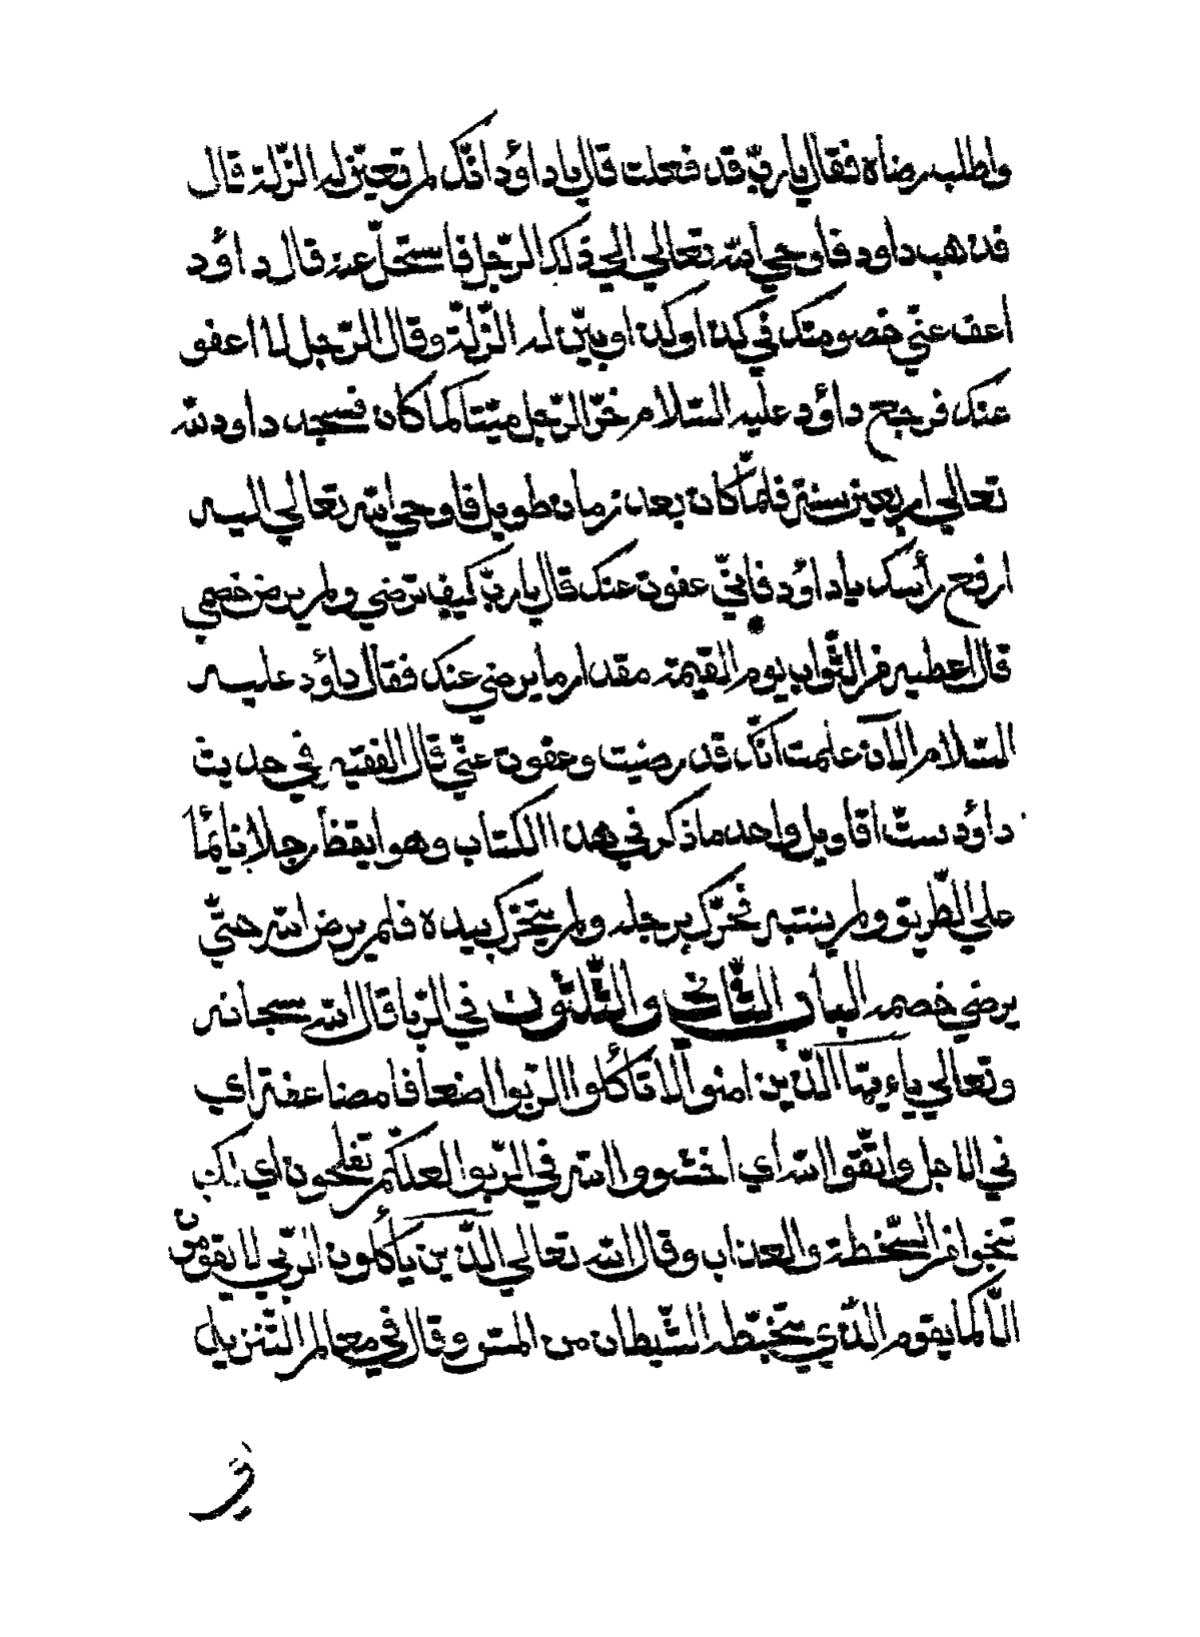 واطلب رضاه فقال يا ربّ قد فعلت قال يا داؤد انّك لم تعيّن له الزّلة قال
فذهب داود فاوحي الله تعالي الي ذلك الرّجل فاستحلّ عنه قال داؤد
اعف عنّي خصومتك في كذا وكذا وبيّن له الزّلّة وقال الرّجل لا اعفو
عنك فرجع داؤد عليه السّلام خرّ الرّجل ميّتا كما كان فسجد داود لله
تعالي اربعين سنة فلمّا كان بعد زمان طويل فاوحي الله تعالي اليه
ارفع رأسك يا داؤد فانّي عفوت عنك قال يا ربّ كيف ترضي ولم يرض خصمي
قال اعطيه من الثّواب يوم القيمة مقدار ما يرضي عنك فقال داؤد عليه
السّلام الآن علمت انّك قد رضيت وعفوت عنّي قال الفقيه في حديث
داؤد ستّ اقاويل واحد ما ذكر في هذا الكتاب وهو ايقظ رجلا نائما
علي الطّريق ولم ينتبه نحرّك برجله ولم يتحرّك بيده فلم يرض الله حتّي
يرضي خصمه الباب الثّاني والثّلثون في الرّبا قال الله سبحانه
وتعالي ياءيهّا الّذين امنوا لا تأكلوا الرّبوا اضعافا مضاعفة اي
في الاجل واتّقوا الله اي اخشووا الله في الرّبوا لعلّكم تفلحون اي لكي
تنجوا من السّخطة والعذاب وقال الله تعالي الّذين يأكلون الرّبي لا يقومون
الّا كما يقوم الّذي يتخبّطه الشّيطان من المسّ وقال في معالم التّنزيل